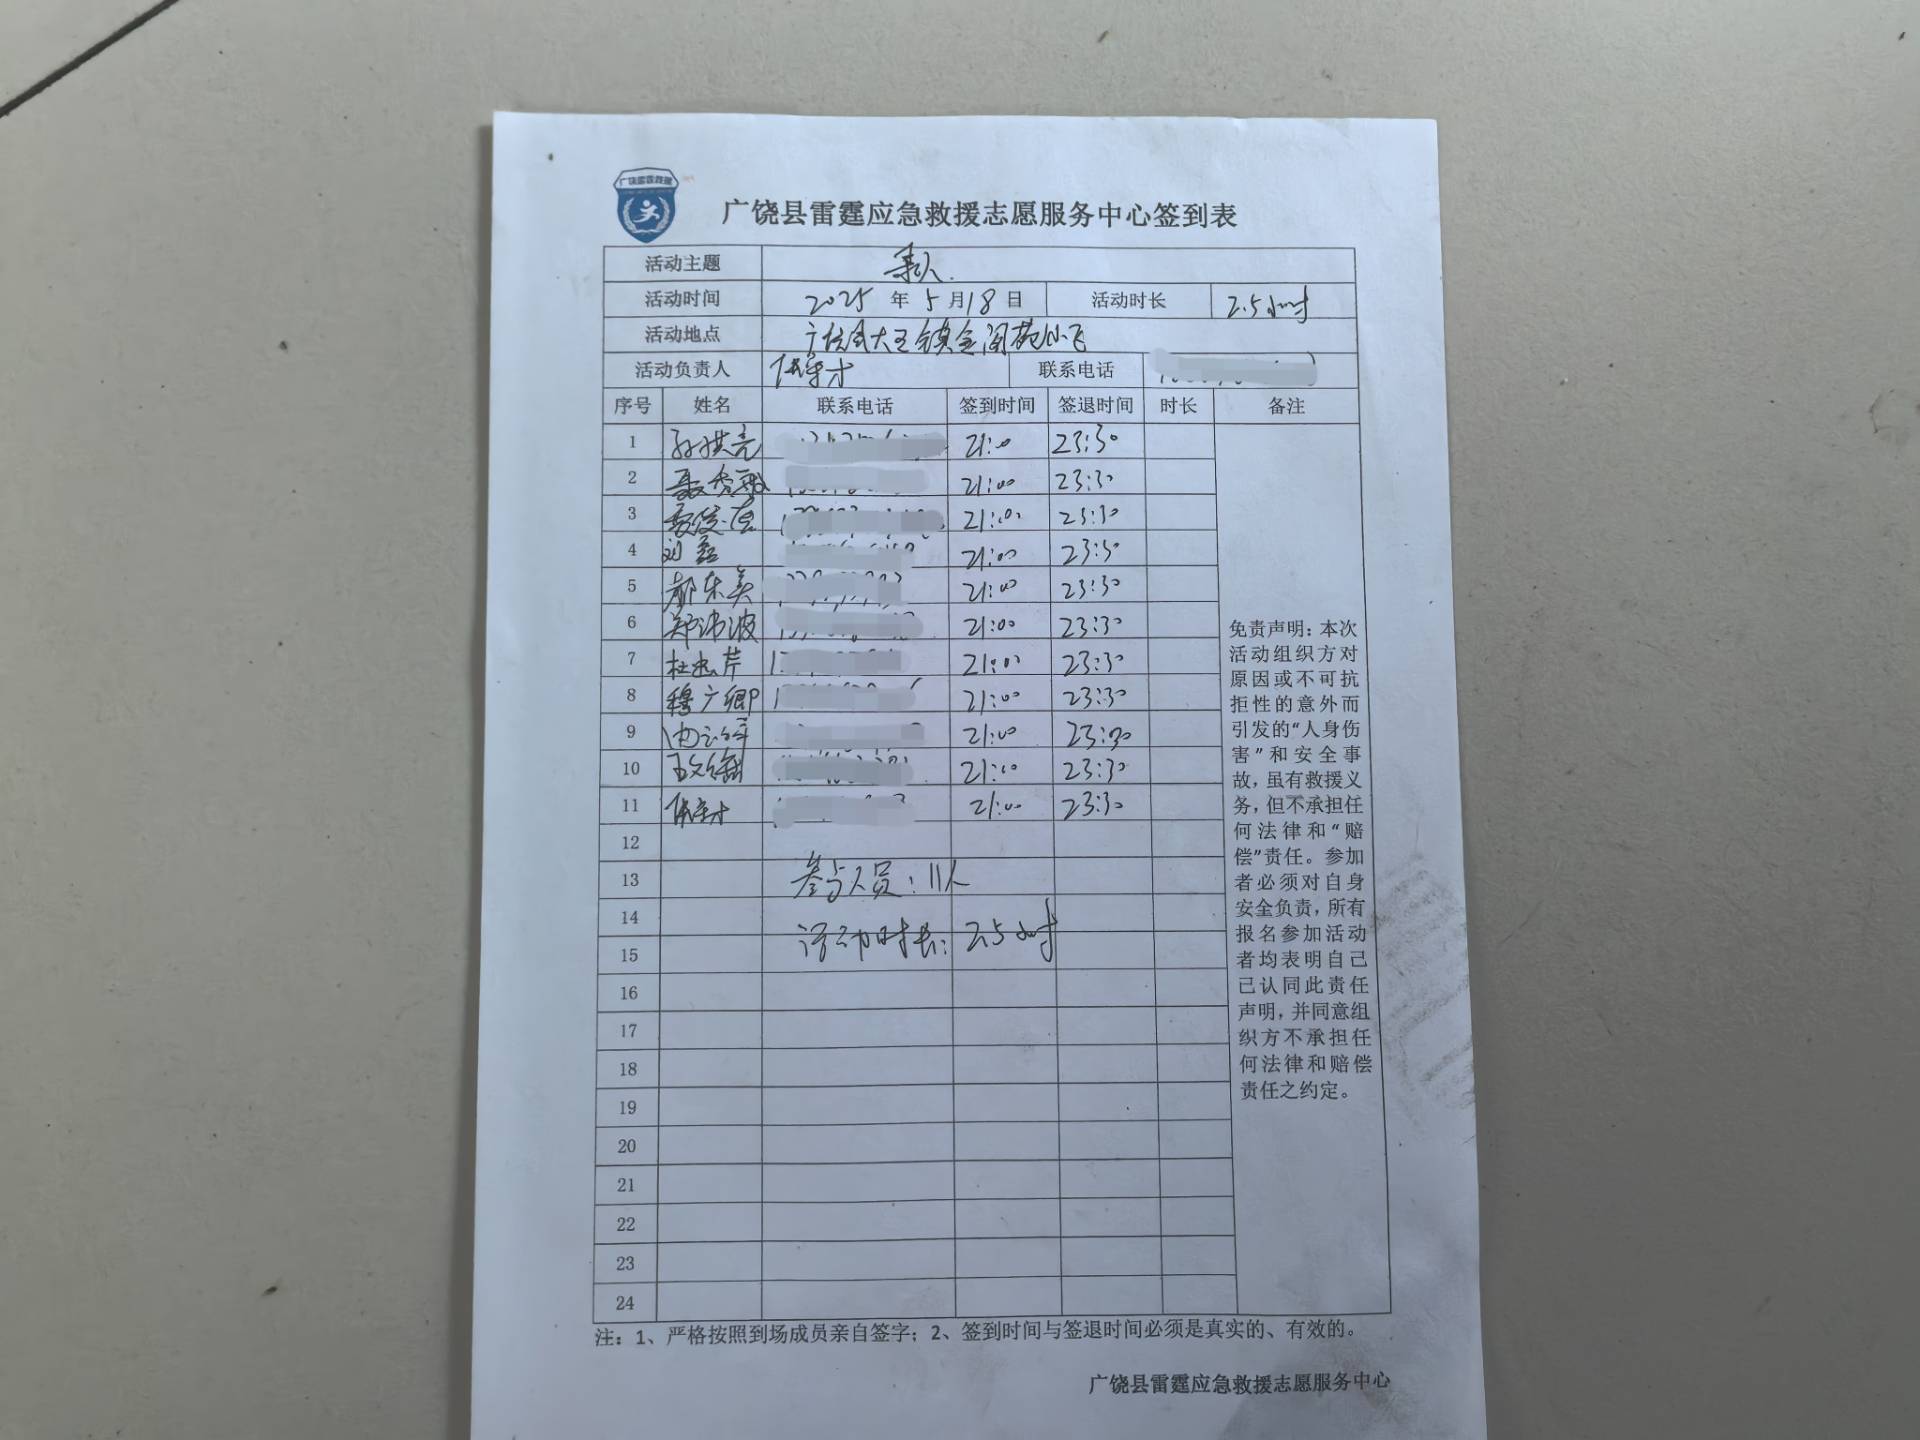 广饶县雷霆应急救援志愿服务中心签到表
活动主题 寻人.
活动时间 2025 年 5 月 18 日 活动时长 2.5小时
活动地点 大王镇金阁苑
活动负责人 联系电话
序号 姓名 联系电话 签到时间 签退时间 时长 备注
1 孙洪亮 21:00 23:30
2 聂秀 21:00 23:30
3 21:00 23:30
4 刘磊 21:00 23:30
5 郝东美 21:00 23:30
6 郑沛波 21:00 23:30
7 杜忠芹 21:00 23:30
8 穆广卿 21:00 23:30
9 21:00 23:30
10 21:00 23:30
11 21:00 23:30
12
13 参与人员：11人
14
15 活动时长：2.5小时
16
17
18
19
20
21
22
23
24
免责声明：本次
活动组织方对
原因或不可抗
拒性的意外而
引发的“人身伤
害”和安全事
故，虽有救援义
务，但不承担任
何法律和“赔
偿”责任。参加
者必须对自身
安全负责，所有
报名参加活动
者均表明自己
已认同此责任
声明，并同意组
织方不承担任
何法律和赔偿
责任之约定。
注：1、严格按照到场成员亲自签字；2、签到时间与签退时间必须是真实的、有效的。
广饶县雷霆应急救援志愿服务中心